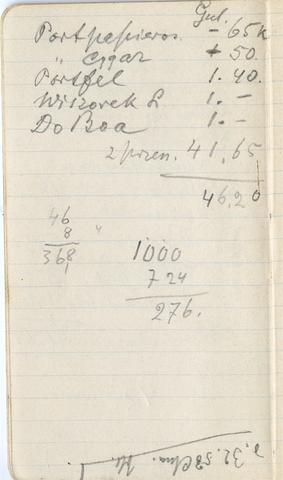 Gul.
Portpapieros. - 65 k
" Cygar + 50.
Portfel 1. 40.
Wisiorek 2. 1. -
Do Boa 1. -
2 przen. 41,65
46,20
46
8
368
1000
724
276.